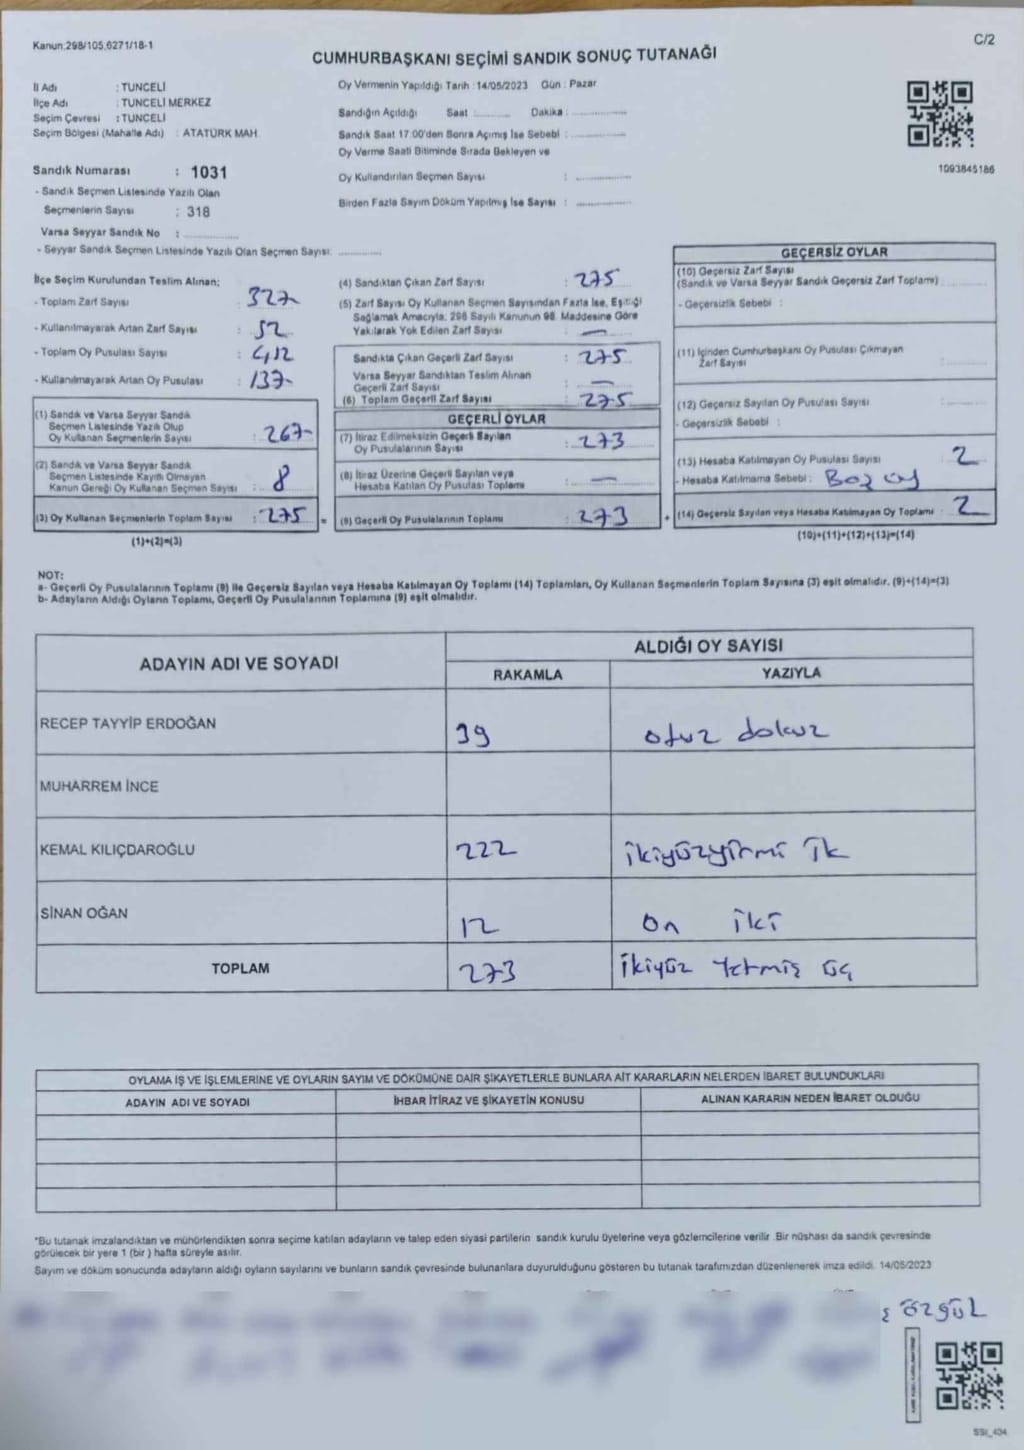 Kanun:298/105,6271/18-1
C/2
CUMHURBAŞKANI SEÇİMİ SANDIK SONUÇ TUTANAĞI
İl Adı : TUNCELİ
İlçe Adı : TUNCELİ MERKEZ
Seçim Çevresi : TUNCELİ
Seçim Bölgesi (Mahalle Adı) : ATATÜRK MAH.
Oy Vermenin Yapıldığı Tarih : 14/05/2023 Gün : Pazar
Sandığın Açıldığı Saat ......... Dakika : ..............
Sandık Saat 17:00'den Sonra Açılmış İse Sebebi : ..............
Oy Verme Saati Bitiminde Sırada Bekleyen ve
Oy Kullandırılan Seçmen Sayısı : ..............
Birden Fazla Sayım Döküm Yapılmış İse Sayısı : ..............
1093845186
Sandık Numarası : 1031
- Sandık Seçmen Listesinde Yazılı Olan
Seçmenlerin Sayısı : 318
Varsa Seyyar Sandık No : ..............
- Seyyar Sandık Seçmen Listesinde Yazılı Olan Seçmen Sayısı: ..............
İlçe Seçim Kurulundan Teslim Alınan;
- Toplam Zarf Sayısı : 327
- Kullanılmayarak Artan Zarf Sayısı : 52
- Toplam Oy Pusulası Sayısı : 412
- Kullanılmayarak Artan Oy Pusulası : 137
(1) Sandık ve Varsa Seyyar Sandık
Seçmen Listesinde Yazılı Olup
Oy Kullanan Seçmenlerin Sayısı : 267
(2) Sandık ve Varsa Seyyar Sandık
Seçmen Listesinde Kayıtlı Olmayan
Kanun Gereği Oy Kullanan Seçmen Sayısı : 8
(3) Oy Kullanan Seçmenlerin Toplam Sayısı : 275 =
(1)+(2)=(3)
(4) Sandıktan Çıkan Zarf Sayısı : 275
(5) Zarf Sayısı Oy Kullanan Seçmen Sayısından Fazla İse, Eşitliği
Sağlamak Amacıyla, 298 Sayılı Kanunun 98. Maddesine Göre
Yakılarak Yok Edilen Zarf Sayısı : —
Sandıkta Çıkan Geçerli Zarf Sayısı : 275
Varsa Seyyar Sandıktan Teslim Alınan
Geçerli Zarf Sayısı : —
(6) Toplam Geçerli Zarf Sayısı : 275
GEÇERLİ OYLAR
(7) İtiraz Edilmeksizin Geçerli Sayılan
Oy Pusulalarının Sayısı : 273
(8) İtiraz Üzerine Geçerli Sayılan veya
Hesaba Katılan Oy Pusulası Toplamı : —
(9) Geçerli Oy Pusulalarının Toplamı : 273 +
GEÇERSİZ OYLAR
(10) Geçersiz Zarf Sayısı
(Sandık ve Varsa Seyyar Sandık Geçersiz Zarf Toplamı) : ..............
- Geçersizlik Sebebi :
(11) İçinden Cumhurbaşkanı Oy Pusulası Çıkmayan
Zarf Sayısı : ..............
(12) Geçersiz Sayılan Oy Pusulası Sayısı : ..............
- Geçersizlik Sebebi :
(13) Hesaba Katılmayan Oy Pusulası Sayısı : 2
- Hesaba Katılmama Sebebi : Boş oy
(14) Geçersiz Sayılan veya Hesaba Katılmayan Oy Toplamı : 2
(10)+(11)+(12)+(13)=(14)
NOT:
a- Geçerli Oy Pusulalarının Toplamı (9) ile Geçersiz Sayılan veya Hesaba Katılmayan Oy Toplamı (14) Toplamları, Oy Kullanan Seçmenlerin Toplam Sayısına (3) eşit olmalıdır. (9)+(14)=(3)
b- Adayların Aldığı Oyların Toplamı, Geçerli Oy Pusulalarının Toplamına (9) eşit olmalıdır.
ADAYIN ADI VE SOYADI
ALDIĞI OY SAYISI
RAKAMLA YAZIYLA
RECEP TAYYİP ERDOĞAN 39 otuz dokuz
MUHARREM İNCE
KEMAL KILIÇDAROĞLU 222 ikiyüzyirmi ik
SİNAN OĞAN 12 on iki
TOPLAM 273 ikiyüz yetmiş üç
OYLAMA İŞ VE İŞLEMLERİNE VE OYLARIN SAYIM VE DÖKÜMÜNE DAİR ŞİKAYETLERLE BUNLARA AİT KARARLARIN NELERDEN İBARET BULUNDUKLARI
ADAYIN ADI VE SOYADI İHBAR İTİRAZ VE ŞİKAYETİN KONUSU ALINAN KARARIN NEDEN İBARET OLDUĞU
*Bu tutanak imzalandıktan ve mühürlendikten sonra seçime katılan adayların ve talep eden siyasi partilerin sandık kurulu üyelerine veya gözlemcilerine verilir. Bir nüshası da sandık çevresinde
görülecek bir yere 1 (bir ) hafta süreyle asılır.
Sayım ve döküm sonucunda adayların aldığı oyların sayılarını ve bunların sandık çevresinde bulunanlara duyurulduğunu gösteren bu tutanak tarafımızdan düzenlenerek imza edildi. 14/05/2023
özgül
SSI_404